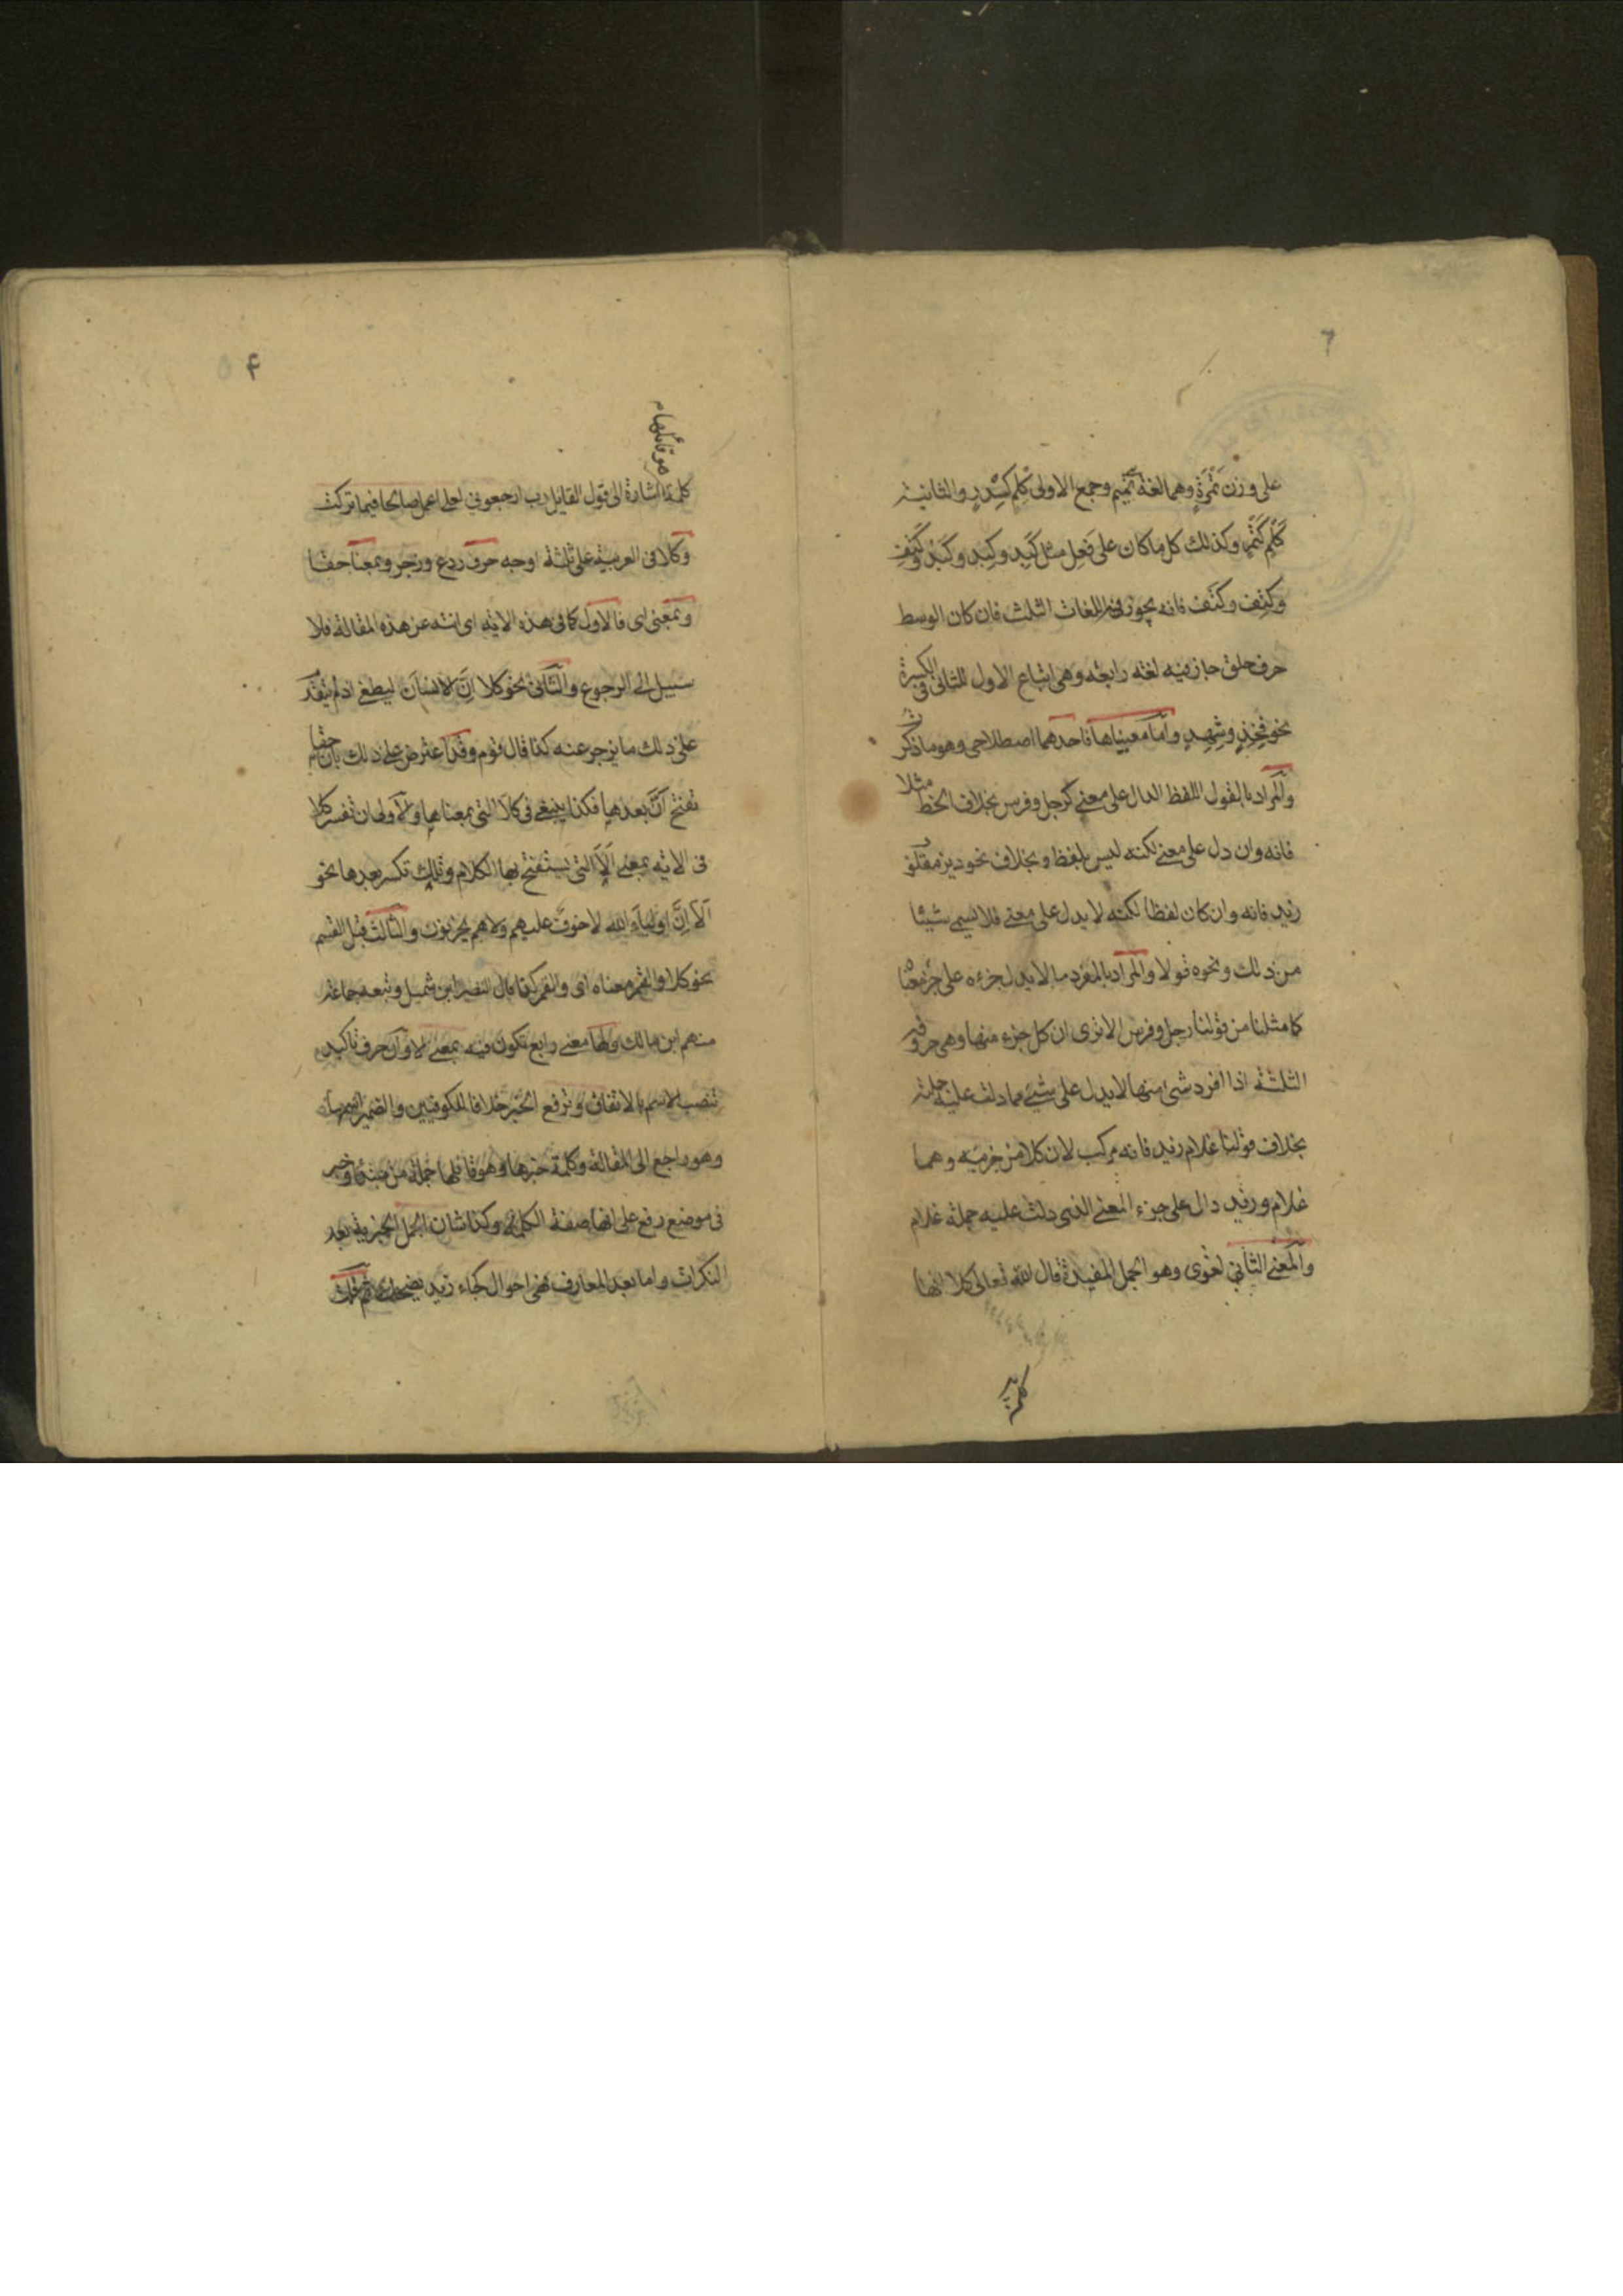 ٦
على وزن تَمْرَةٍ وهما لغة تميم وجمع الاولى كِلِم كسِدرٍ والثانية
كَلْم كَتَمْرٍ وكذلك كل ما كان على فَعِل مثل كَبِد وكِبْد وكَبْد وكَتِف
وكِتْف وكَتْف فانه يجوز فيه اللغات الثلث فان كان الوسط
حرف حلق جاز فيه لغة رابعة وهى اتباع الاول للثانى فى الكسرة
نحو فِخِذٍ وشِهِدٍ واما معنياها فاحدهما اصطلاحى وهو ما ذكرت
والمراد بالقول اللفظ الدال على معنى كرجل وفرس بخلاف الخط مثلا
فانه وان دل على معنى لكنه ليس بلفظ وبخلاف نحو ديز مقلوب
زيد فانه وان كان لفظا لكنه لا يدل على معنى فلا يسمى شيئا
من ذلك ونحوه قولا والمراد بالمفرد ما لا يدل جزءه على جزء معناه
كما مثلنا من قولنا رجل وفرس الا ترى ان كل جزء منها وهى حروفه
الثلثة اذا افرد شى منها لا يدل على شيئ مما دلت عليه جملته
بخلاف قولنا غلام زيد فانه مركب لان كلا من جزئيه وهما
غلام وزيد دال على جزء المعنى الذى دلت عليه جملة غلام
والمعنى الثانى لغوى وهو الجمل المفيدة قال الله تعالى كلا انها
كلمة
٤ ٥
هو قائلها م
كلمة اشارة الى قول القايل رب ارجعونى لعلى اعمل صالحا فيما تركت
وكلا فى العربية على ثلثة اوجه حرف ردع وزجر وبمعنا حقا
وبمعنى اى فالاول كما فى هذه الاية اى انته عن هذه المقالة فلا
سبيل الى الرجوع والثانى نحو كلا اِنَّ الانسان ليطغى اذ لم يتقدم
على ذلك ما يزجر عنه كذا قال قوم وقد اعترض على ذلك بان حقا
تفتح اَنَّ بعدها فكذا ينبغى فى كلا التى بمعناها والاولى ان تفسر كلا
فى الاية بمعنى اَلَا التى يستفتح بها الكلام وتلك تكسر بعدها نحو
اَلا اِنَّ اولياء الله لا خوف عليهم ولا هم يحزنون والثالث قبل القسم
نحو كلا والقمر معناه اى والقمر كذا قال النضر ابن شميل وتبعه جماعة
منهم ابن مالك ولها معنى رابع تكون فيه بمعنى الا وان حرف تاكيد
تنصب الاسم بالاتفاق وترفع الخبر خلافا للكوفيين والضمير اسمها
وهو راجع الى المقالة وكلمة خبرها وهو قائلها جملة من مبتدا وخبر
فى موضع رفع على انها صفة الكلمة وكذا شان الجمل الخبرية بعد
النكرات واما بعد المعارف فهى احوال كجاء زيد يضحك